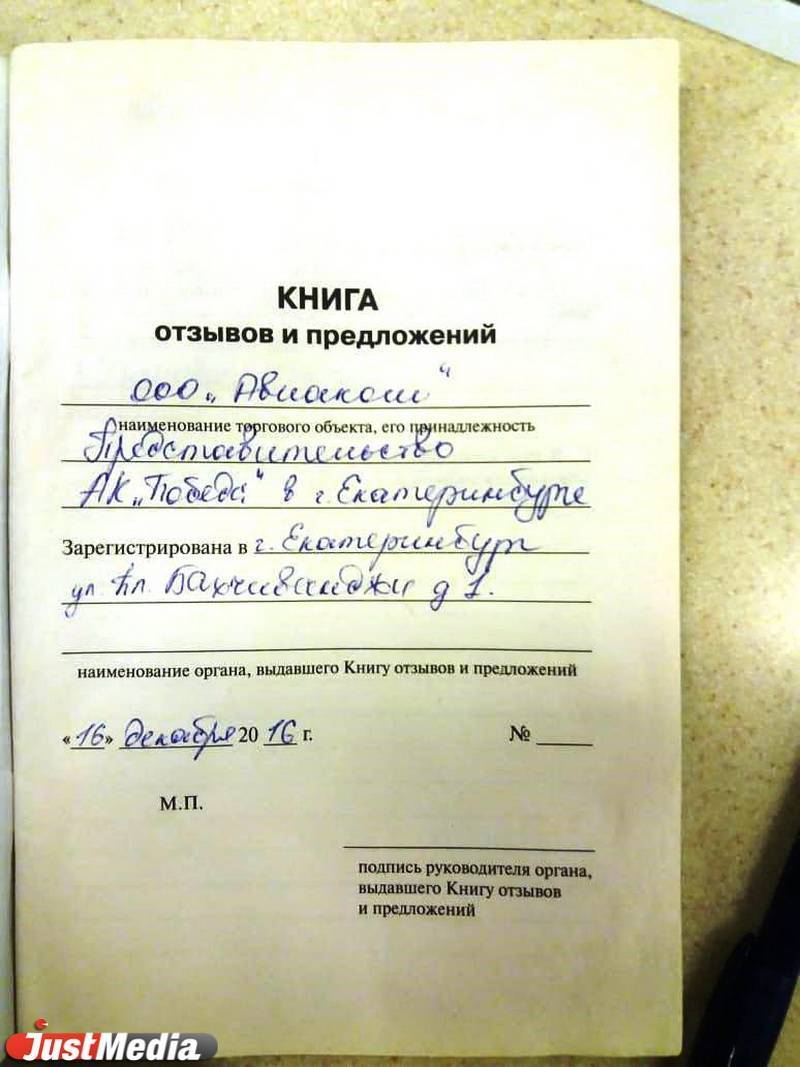 КНИГА
отзывов и предложений
ООО „Авиаком"
наименование торгового объекта, его принадлежность
Представительство
АК „Победа" в г. Екатеринбурге
Зарегистрирована в г. Екатеринбург
ул. Пл. Бахчиванджи д 1.
наименование органа, выдавшего Книгу отзывов и предложений
«16» декабря 2016 г. № ____
М.П.
подпись руководителя органа,
выдавшего Книгу отзывов
и предложений
JustMedia